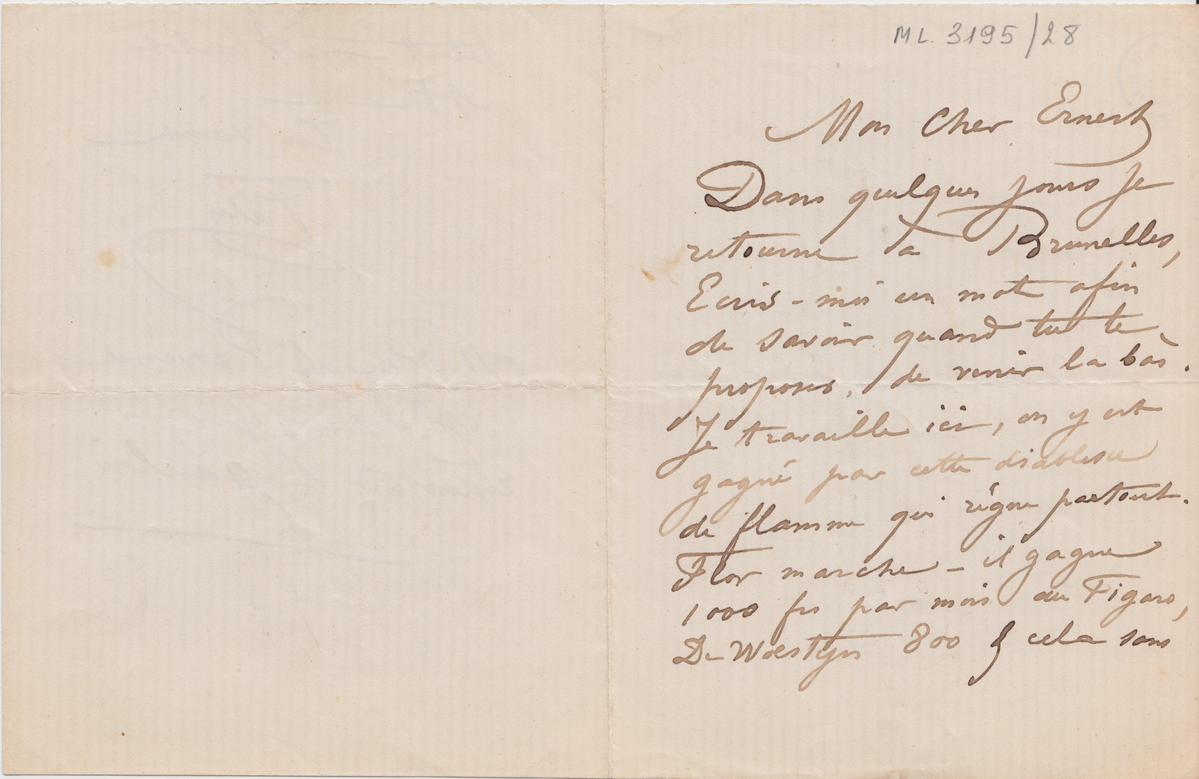 ML. 3195/28
Mon Cher Ernest
Dans quelques jours je
retourne à Bruxelles,
Ecris-moi un mot afin
de savoir quand tu te
proposes, de venir la bàs.
Je travaille ici, on y est
gagné par cette diablesse
de flamme qui règne partout.
Flor marche - il gagne
1000 frs par mois au Figaro,
De Woestyn 800 & cela sans